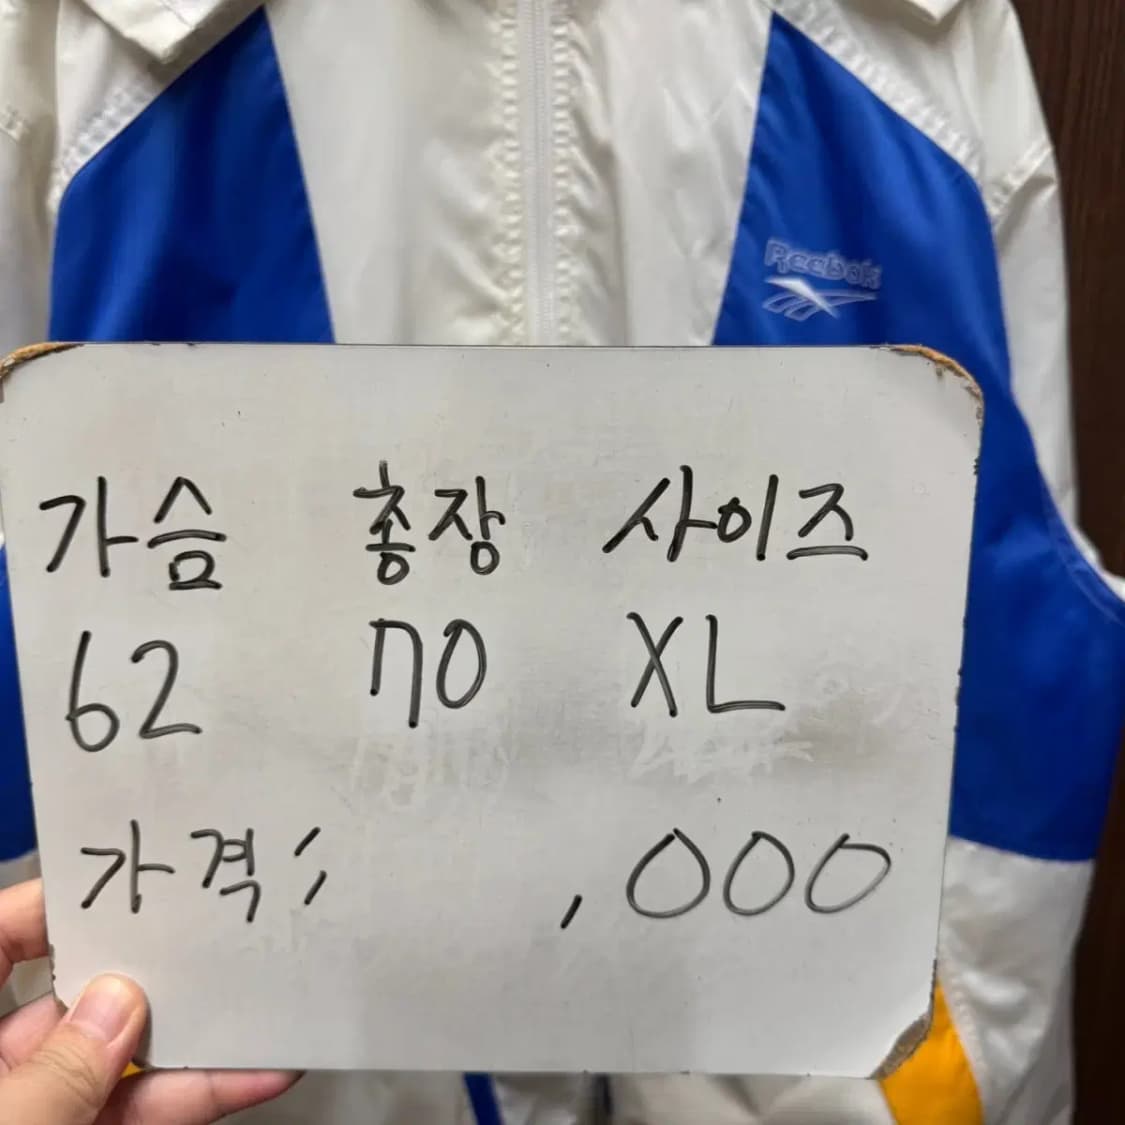 Reebok
가슴 총장 사이즈
62 70 XL
가격: ,000